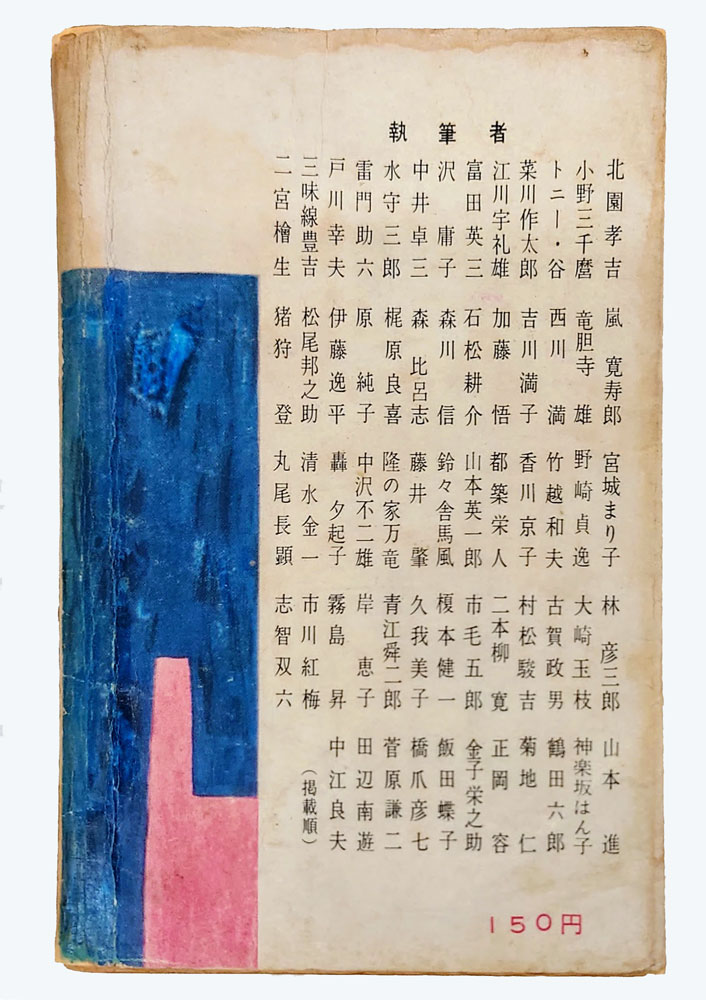 執筆者
北園孝吉 嵐寛寿郎 宮城まり子 林彦三郎 山本進
小野三千麿 竜胆寺雄 野崎貞逸 大崎玉枝 神楽坂はん子
トニー・谷 西川満 竹越和夫 古賀政男 鶴田六郎
菜川作太郎 吉川満子 香川京子 村松駿吉 菊地仁
江川宇礼雄 加藤悟 都築栄人 二本柳寛 正岡容
富田英三 石松耕介 山本英一郎 市毛五郎 金子栄之助
沢庸子 森川信 鈴々舎馬風 榎本健一 飯田蝶子
中井卓三 森比呂志 藤井肇 久我美子 橋爪彦七
水守三郎 梶原良喜 隆の家万竜 青江舜二郎 菅原謙二
雷門助六 原純子 中沢不二雄 岸恵子 田辺南遊
戸川幸夫 伊藤逸平 轟夕起子 霧島昇 中江良夫
三味線豊吉 松尾邦之助 清水金一 市川紅梅 （掲載順）
二宮檜生 猪狩登 丸尾長顕 志智双六
150円